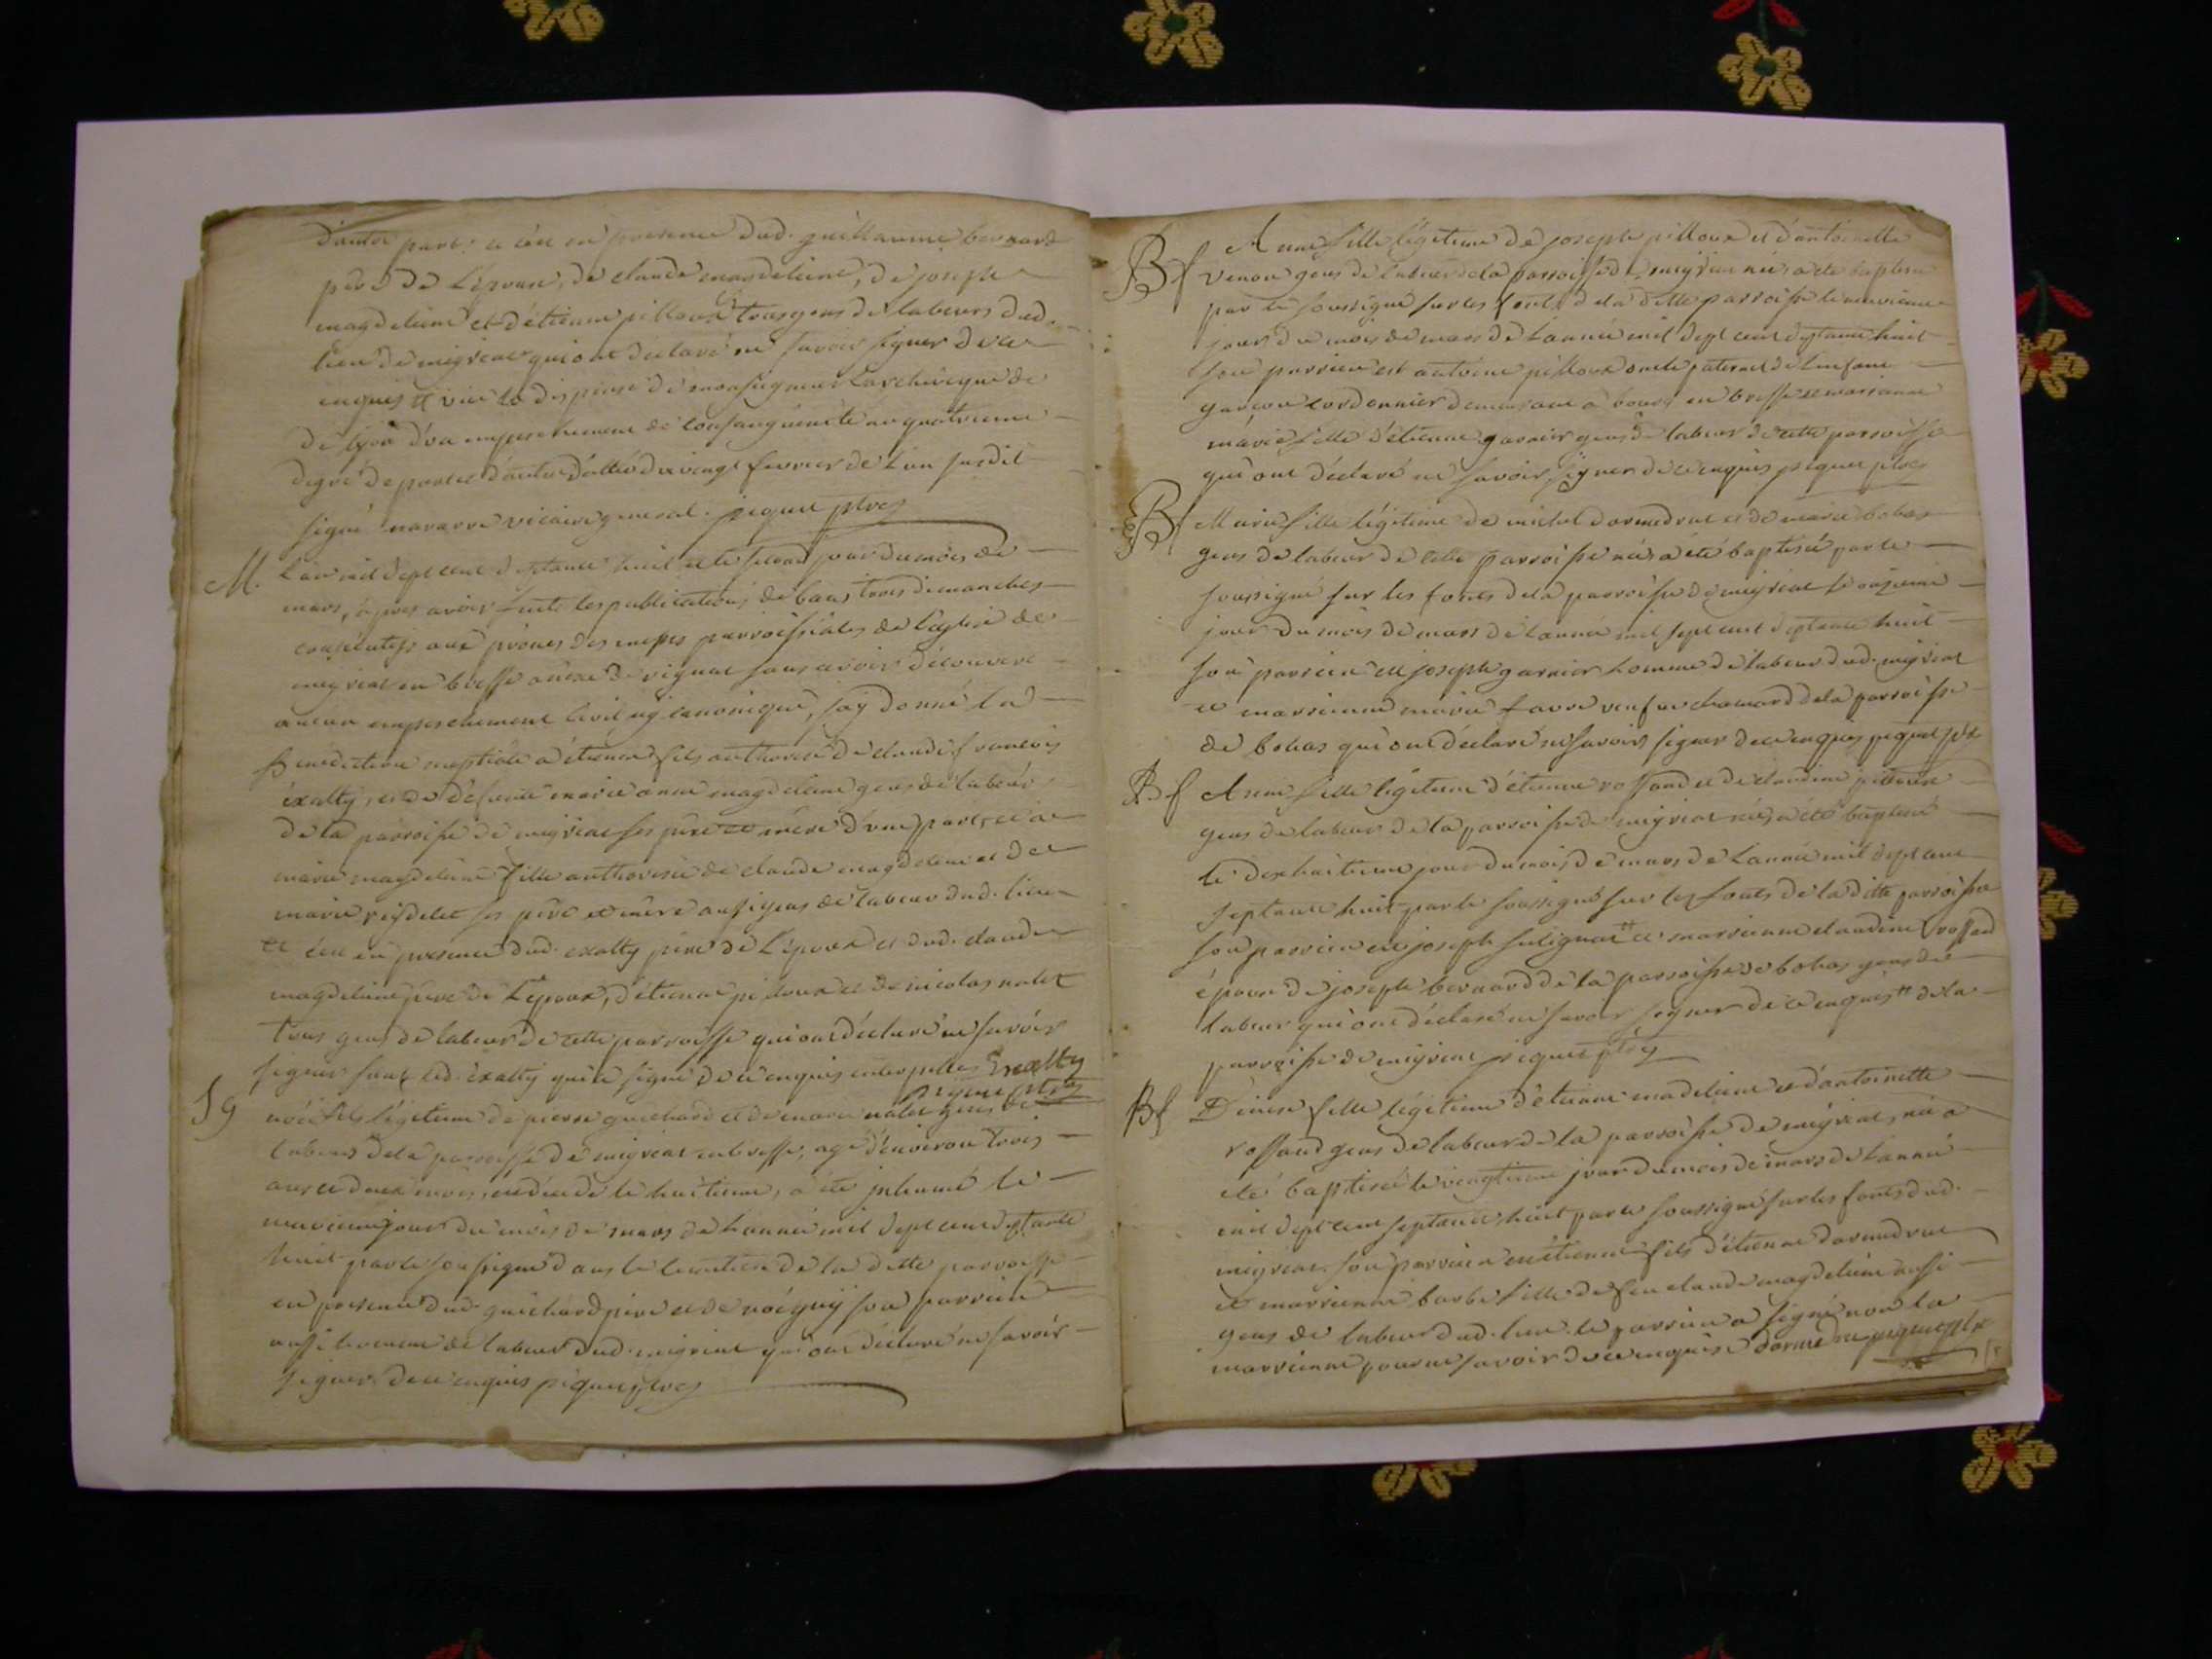 d'autre part; et ce en presence dud. guillaume bernard
père de L'épouse, de claude magdeleine, de joseph
magdeleine et d'étienne pilloux tous gens de labeurs dud.
lieu de meyriat qui ont déclaré ne savoir signer de ce
enquis # vue la dispense de monseigneur L'archevêque de
de lyon d'un empeschement de consanguinité au quatrieme
degré de part et d'autre dattée du vingt fevrier de L'an susdit
signé navarre vicaire general. piquet ptre
M. L'an mil sept cent septante huit et le second jour du mois de
mars, après avoir fait les publications de bans trois dimanches
consécutifs aux prônes des messes parroissiales de L'église de
meyriat en bresse annexe de rignat sans avoir découvert
aucun empeschement civil ny canonique, j'ay donné la
Bénédiction nuptiale a étienne fils authorisé de claude françois
exalty, et de défunte marie anne magdeleine gens de labeur
de la parroisse de meyriat ses père et mère d'une part, et a
marie magdeleine fille authorisée de claude magdeleine et de
marie reydelet ses père et mère aussi gens de labeur dud. lieu
et ce en presence dud. exalty père de L'époux et dud. claude
magdeleine père de L'épouse, d'étienne pilloux et de nicolas nalet
tous gens de labeur de cette parroisse qui ont déclaré ne savoir
signer sauf led. exalty qui a signé de ce enquis interpellés Exalty
piquet ptre
Sg noé fils légitime de pierre guichard et de marie nalet gens de
labeurs de la parroisse de meyriat en bresse, agé d'environ trois
ans et deux mois, décédé le huitieme, a été inhumé le
neuvieme jour du mois de mars de L'année mil sept cent septante
huit par le soussigné dans le cimetiere de la ditte parroisse
en presence dud. guichard père et de noé guy son parrain
aussi homme de labeur dud. meyriat qui ont déclaré ne savoir
signer de ce enquis piquet ptre
Bf Anne fille légitime de joseph pilloux et d'antoinette
venou gens de labeur de la parroisse de meyriat née, a été baptisée
par le soussigné sur les fonts de la ditte parroisse le neuvieme
jour du mois de mars de L'année mil sept cent septante huit
son parrain est antoine pilloux oncle paternel de L'enfant
garçon cordonnier demeurant a bourg en bresse et marrianne
marie fille d'étienne gavoir gens de labeur de cette parroisse
qui ont déclaré ne savoir signer de ce enquis piquet ptre
Bf Marie fille légitime de michel dormedrue et de marie bobas
gens de labeur de cette parroisse née a été baptisée par le
soussigné sur les fonts de la parroisse de meyriat le onzieme
jour du mois de mars de L'année mil sept cent septante huit
son parrain est joseph garnier homme de labeur dud. meyriat
et marrianne marie favre veufve chanard de la parroisse
de bohas qui ont déclaré ne savoir signer de ce enquis piquet ptre
Bf Anne fille légitime d'étienne roffand et de claudine pilloux
gens de labeur de la parroisse de meyriat née, a été baptisée
le dix huitieme jour du mois de mars de L'année mil sept cent
septante huit par le soussigné sur les fonts de la ditte parroisse
son parrain est joseph sulignat # et marrianne claudine roffand
épouse de joseph bernard de la parroisse de bohas gens de
labeur qui ont déclaré ne savoir signer de ce enquis # de la
parroisse de meyriat piquet ptre
Bf Dénise fille légitime d'étienne madeleine et d'antoinette
roffand gens de labeur de la parroisse de meyriat, née a
été baptisée le vingtieme jour du mois de mars de L'année
mil sept cent septante huit par le soussigné sur les fonts dud.
meyriat. son parrain est étienne fils d'étienne dormedrue
et marrianne barbe fille de feu claude magdeleine aussi
gens de labeur dud. lieu. le parrain a signé non la
marrianne pour ne savoir de ce enquise dormedrue piquet ptre